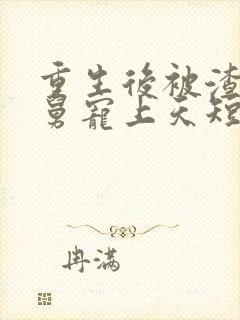 重生後被渣
舅寵上天短
冉滿